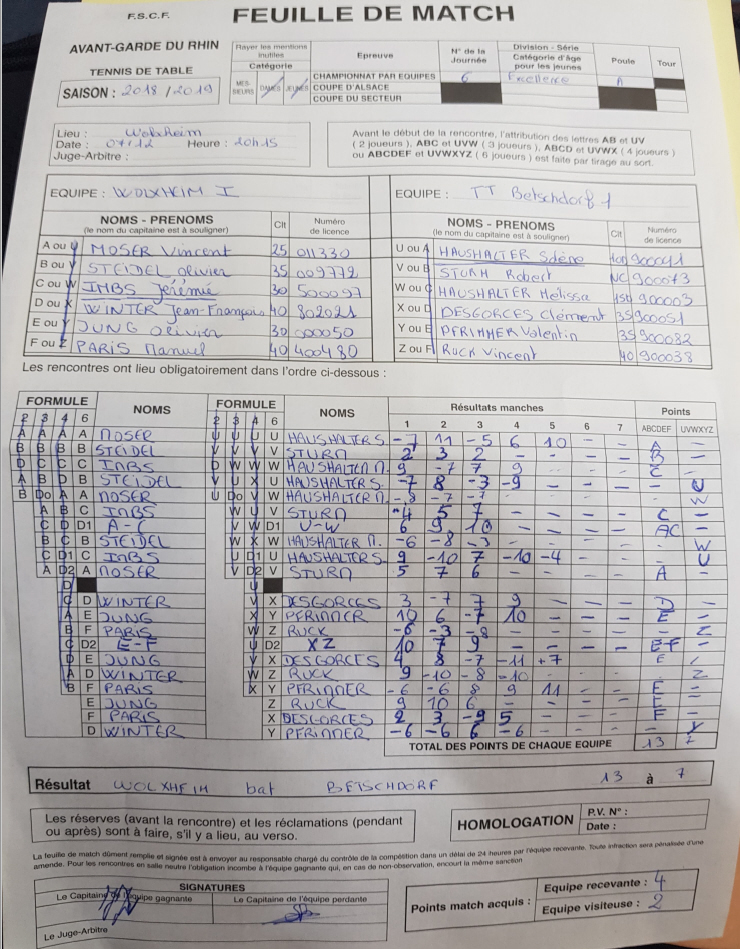 F.S.C.F. FEUILLE DE MATCH
AVANT-GARDE DU RHIN
TENNIS DE TABLE
SAISON : 2018 / 2019
Rayer les mentions inutiles
Catégorie
MES-SIEURS DAMES JEUNES
Epreuve
CHAMPIONNAT PAR EQUIPES
COUPE D'ALSACE
COUPE DU SECTEUR
N° de la Journée
6
Division - Série
Catégorie d'âge pour les jeunes
Excellence
Poule
A
Tour
Lieu : Wolxheim
Date : 07/12 Heure : 20h15
Juge-Arbitre :
Avant le début de la rencontre, l'attribution des lettres AB et UV
( 2 joueurs ), ABC et UVW ( 3 joueurs ), ABCD et UVWX ( 4 joueurs )
ou ABCDEF et UVWXYZ ( 6 joueurs ) est faite par tirage au sort.
EQUIPE : WOLXHEIM I
NOMS - PRENOMS
(le nom du capitaine est à souligner)
Clt
Numéro de licence
A ou U MOSER Vincent 25 011330
B ou V STEIDEL Olivier 35 009772
C ou W IMBS Jérémie 30 500097
D ou X WINTER Jean-François 40 802021
E ou Y JUNG Olivier 30 000050
F ou Z PARIS Manuel 40 400480
EQUIPE : TT Betschdorf 1
NOMS - PRENOMS
(le nom du capitaine est à souligner)
Clt
Numéro de licence
U ou A HAUSHALTER 900041
V ou B STURM Robert NC 900073
W ou C HAUSHALTER Mélissa 900003
X ou D DESGORCES Clément 35 900051
Y ou E PFRIMMER Valentin 35 900082
Z ou F RUCK Vincent 40 900038
Les rencontres ont lieu obligatoirement dans l'ordre ci-dessous :
FORMULE NOMS FORMULE NOMS Résultats manches Points
2 3 4 6 2 3 4 6 1 2 3 4 5 6 7 ABCDEF UVWXYZ
A A A A MOSER U U U U HAUSHALTER S. -7 11 -5 6 10 - - A -
B B B B STEIDEL V V V V STURM 2 3 2 - - - - B -
D C C C IMBS W W W HAUSHALTER M. 9 -7 7 9 - - - C -
A B D B STEIDEL V U X U HAUSHALTER S. -7 8 -3 -9 - - - - U
B Do A A MOSER U Do V W HAUSHALTER M. -8 -7 -7 - - - - - W
A B C IMBS W U V STURM 4 5 7 - - - - C -
C D D1 A-C V W D1 U-W 6 9 10 - - - - AC -
B C B STEIDEL W X W HAUSHALTER M. -6 -8 -3 - - - - - W
C D1 C IMBS U D1 U HAUSHALTER S 9 -10 7 -10 -4 - - - U
A D2 A MOSER V D2 V STURM 5 7 6 - - - - A -
D WINTER X DESGORCES 3 -7 7 9 - - - D -
E JUNG Y PFRIMMER 10 6 -7 10 - - - E -
F PARIS Z RUCK -6 -3 -8 - - - - - Z
D2 E-F D2 XZ 10 7 9 - - - - EF -
E JUNG X DESGORCES 4 8 -7 -11 +7 E
D WINTER Z RUCK 9 -10 -8 -10 - - - Z
F PARIS Y PFRIMMER -6 -6 8 9 11 - -
E JUNG Z RUCK 9 10 6 - - - - E -
F PARIS X DESGORCES 2 3 -9 5 - - - F -
D WINTER Y PFRIMMER -6 -6 6 -6 - - - - Y
TOTAL DES POINTS DE CHAQUE EQUIPE 13 7
Résultat WOLXHEIM bat BETSCHDORF 13 à 7
Les réserves (avant la rencontre) et les réclamations (pendant
ou après) sont à faire, s'il y a lieu, au verso.
HOMOLOGATION
P.V. N° :
Date :
La feuille de match dûment remplie et signée est à envoyer au responsable chargé du contrôle de la compétition dans un délai de 24 heures par l'équipe recevante. Toute infraction sera pénalisée d'une
amende. Pour les rencontres en salle neutre l'obligation incombe à l'équipe gagnante qui, en cas de non-observation, encourt la même sanction
SIGNATURES
Le Capitaine de l'équipe gagnante
Le Capitaine de l'équipe perdante
Le Juge-Arbitre
Points match acquis :
Equipe recevante : 4
Equipe visiteuse : 2